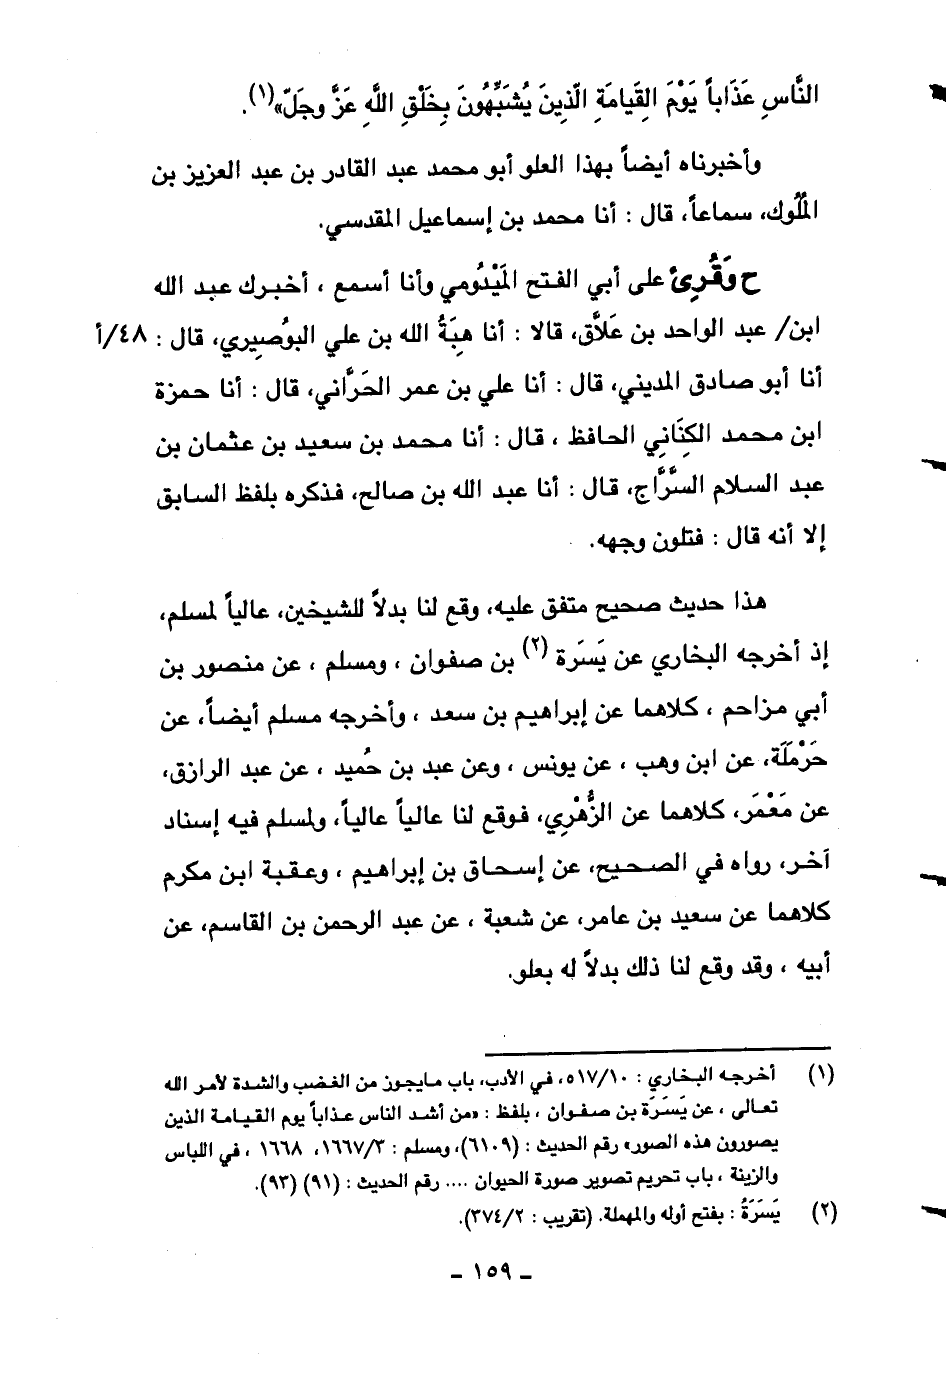 النَّاسِ عَذَاباً يَوْمَ القِيامَةِ الَّذِينَ يُشَبِّهُونَ بِخَلْقِ اللَّهِ عَزَّ وجَلّ»(١).
وأخبرناه أيضاً بهذا العلو أبو محمد عبد القادر بن عبد العزيز بن
المُلُوك، سماعاً، قال : أنا محمد بن إسماعيل المقدسي.
ح وَقُرِئ على أبي الفتح المَيْدُومي وأنا أسمع ، أخبرك عبد الله
ابن/ عبد الواحد بن عَلاَّق، قالا : أنا هِبَةُ الله بن علي البوُصيِري، قال : ٤٨/أ
أنا أبو صادق المديني، قال : أنا علي بن عمر الحَرَّاني، قال : أنا حمزة
ابن محمد الكِنَانِي الحافظ ، قال : أنا محمد بن سعيد بن عثمان بن
عبد السلام السَّرَّاج، قال : أنا عبد الله بن صالح، فذكره بلفظ السابق
إلا أنه قال : فتلون وجهه.
هذا حديث صحيح متفق عليه، وقع لنا بدلاً للشيخين، عالياً لمسلم،
إذ أخرجه البخاري عن يَسَرَة (٢) بن صفوان ، ومسلم ، عن منصور بن
أبي مزاحم ، كلاهما عن إبراهيم بن سعد ، وأخرجه مسلم أيضاً، عن
حَرْمَلَة، عن ابن وهب ، عن يونس ، وعن عبد بن حُميد ، عن عبد الرازق،
عن مَعْمَر، كلاهما عن الزُّهْرِي، فوقع لنا عالياً عالياً، ولمسلم فيه إسناد
آخر، رواه في الصحيح، عن إسحاق بن إبراهيم ، وعقبة ابن مكرم
كلاهما عن سعيد بن عامر، عن شعبة ، عن عبد الرحمن بن القاسم، عن
أبيه ، وقد وقع لنا ذلك بدلاً له بعلو.
(١) أخرجه البخاري : ٥١٧/١٠، في الأدب، باب مايجوز من الغضب والشدة لأمر الله
تعالى ، عن يَسَرَة بن صفوان ، بلفظ : «من أشد الناس عذاباً يوم القيامة الذين
يصورون هذه الصور» رقم الحديث : (٦١٠٩)، ومسلم : ١٦٦٧/٣، ١٦٦٨ ، في اللباس
والزينة ، باب تحريم تصوير صورة الحيوان .... رقم الحديث : (٩١) (٩٣).
(٢) يَسَرَةُ : بفتح أوله والمهملة. (تقريب : ٣٧٤/٢).
- ١٥٩ -